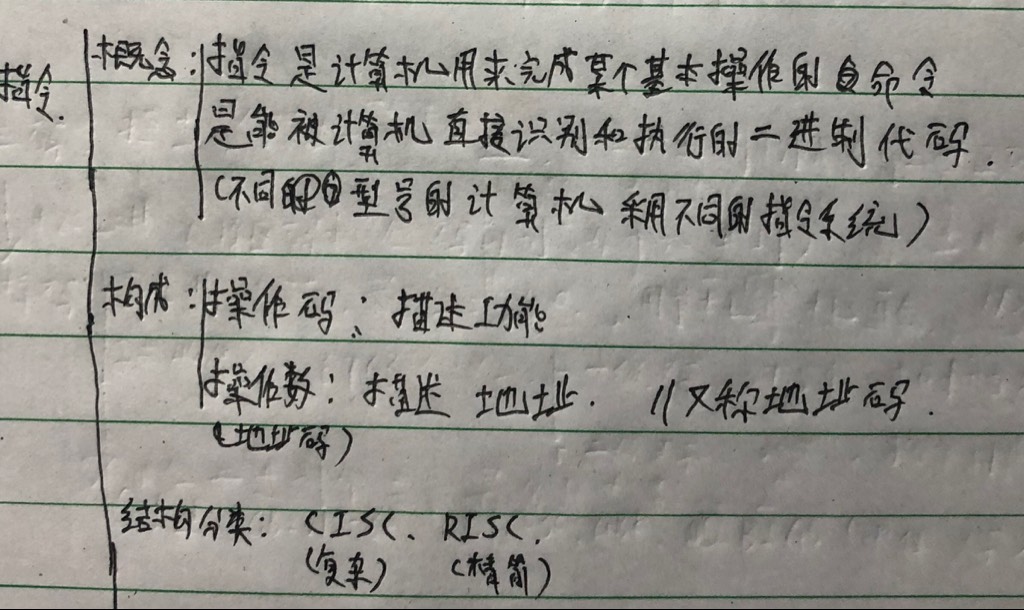 指令.
概念:指令是计算机用来完成某个基本操作的命令
是能被计算机直接识别和执行的二进制代码.
(不同型号的计算机采用不同的指令系统)
构成:操作码:描述功能
操作数:描述地址. //又称地址码.
(地址码)
结构分类: CISC、RISC.
(复杂) (精简)